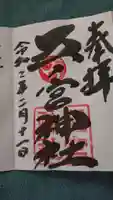 奉拝
五宮神社
令和三年二月十一日